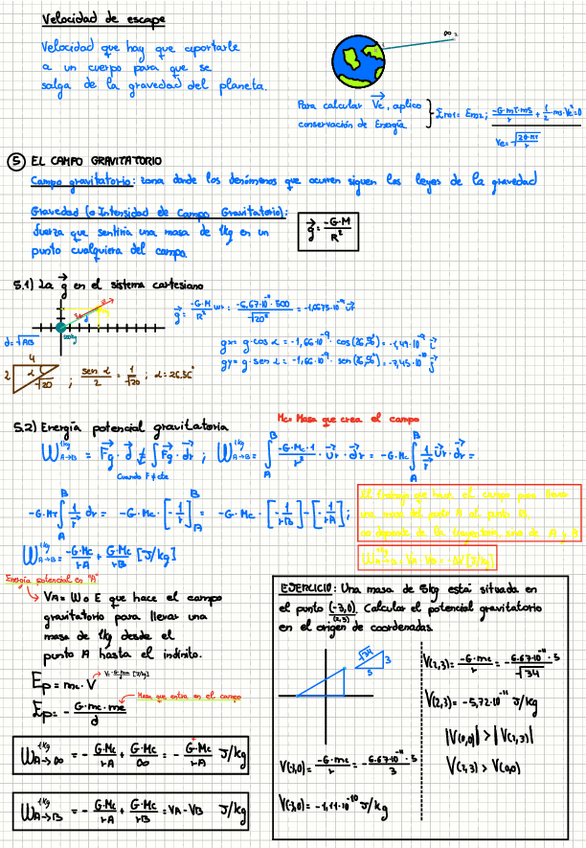 Velocidad de escape
Velocidad que hay que aportarle
a un cuerpo para que se
salga de la gravedad del planeta.
∞
Para calcular Ve, aplico
conservación de Energía
Em1 = Em2; -G·mT·ms/r + 1/2 ms·Ve² = 0
Ve = √(2G·MT/r)
5 EL CAMPO GRAVITATORIO
Campo gravitatorio: zona donde los fenómenos que ocurren siguen las leyes de la gravedad
Gravedad (o Intensidad de Campo Gravitatorio):
fuerza que sentiría una masa de 1kg en un
punto cualquiera del campo.
g = -G·M/R²
5.1) La g en el sistema cartesiano
g = -G·M/R² ur = -6,67·10⁻¹¹·500/√20²
gx = g·cos α = -1,66·10⁻⁹ · cos(26,56°) = -1,49·10⁻⁹ i
gy = g·sen α = -1,66·10⁻⁹ · sen(26,56°) = -7,45·10⁻¹⁰ j
4
2 α √20 ; sen α/2 = 1/√20 ; α = 26.56°
5.2) Energía potencial gravitatoria
Mc = Masa que crea el campo
W A→B 1kg = Fg · d ≠ ∫ Fg · dr ; W A→B 1kg = ∫ A B -G·Mc·1/r² · ur · dr = -G·Mc ∫ A B 1/r² ur · dr =
Cuando F ≠ cte
∫ A B 1/r dr = -G·Mc · [-1/r] A B = -G·Mc · [-1/rB] - [-1/rA];
El trabajo que hace el campo para llevar
una masa del punto A al punto B,
no depende de la trayectoria, sino de A y B
W A→B 1kg = -G·Mc/rA + G·Mc/rB [J/kg]
W A→B = VA - VB = -ΔV [J/kg]
Energía potencial en "A"
VA = W o E que hace el campo
gravitatorio para llevar una
masa de 1kg desde el
punto A hasta el infinito.
Ep = m·V
Ep = - G·mc·me/d
Masa que entra en el campo
W A→∞ 1kg = - G·Mc/rA + G·Mc/∞ = - G·Mc/rA J/kg
W A→B 1kg = - G·Mc/rA + G·Mc/rB = VA - VB J/kg
EJERCICIO: Una masa de 5kg está situada en
el punto (-3,0). Calcular el potencial gravitatorio
(2,3)
en el origen de coordenadas.
√34 3
5
V(2,3) = -G·mc/r = - 6.67·10⁻¹¹·5/√34
V(2,3) = -5,72·10⁻¹¹ J/kg
V(0,0) = -G·mc/r = -6.67·10⁻¹¹·5/3
V(2,3) > V(0,0)